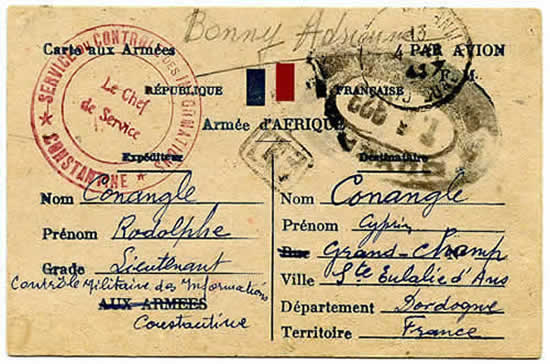 Bonny Adrienne
Carte aux Armées
PAR AVION
F. M.
RÉPUBLIQUE FRANÇAISE
Armée d'AFRIQUE
SERVICE DU CONTROLE DES INFORMATIONS
★ CONSTANTINE ★
Le Chef
de Service
Expéditeur
Nom Conangle
Prénom Rodolphe
Grade Lieutenant
Contrôle Militaire des Informations
AUX ARMEES
Constantine
Destinataire
Nom Conangle
Prénom Cyprien
Rue Grand-Champ
Ville Ste Eulalie d'Ans
Département Dordogne
Territoire France